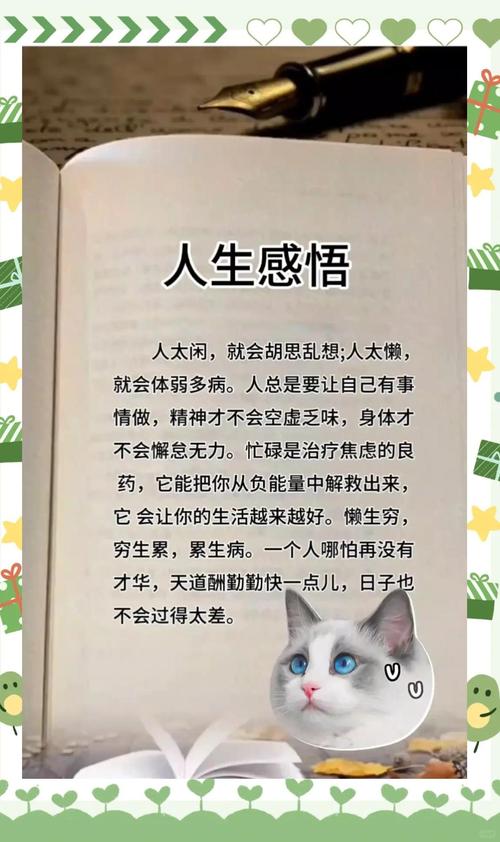 人生感悟
人太闲，就会胡思乱想;人太懒，
就会体弱多病。人总是要让自己有事
情做，精神才不会空虚乏味，身体才
不会懈怠无力。忙碌是治疗焦虑的良
药，它能把你从负能量中解救出来，
它 会让你的生活越来越好。懒生穷，
穷生累，累生病。一个人哪怕再没有
才华，天道酬勤勤快一点儿，日子也
不会过得太差。